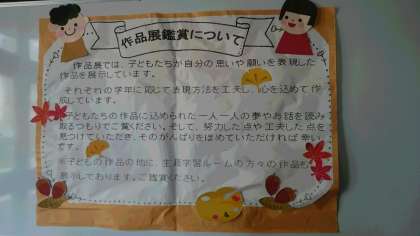 作品展鑑賞について
作品展では、子どもたちが自分の思いや願いを表現した
作品を展示しています。
それぞれの学年に応じて表現方法を工夫し、心を込めて作
成しています。
子どもたちの作品に込められた一人一人の夢やお話を読み
取るつもりでご覧ください。そして、努力した点や工夫した点を
見つけていただき、そのがんばりをほめていただければ幸い
です。
※子どもの作品の他に、生涯学習ルームの方々の作品も
展示しております。ご鑑賞ください。